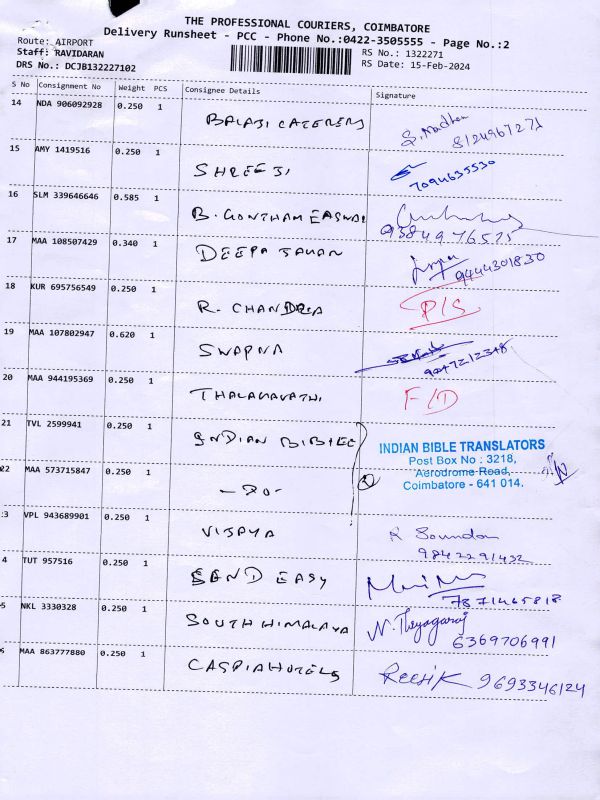 THE PROFESSIONAL COURIERS, COIMBATORE
Delivery Runsheet - PCC - Phone No.:0422-3505555 - Page No.:2
Route: AIRPORT
Staff: RAVIDARAN
DRS No.: DCJB132227102
RS No.: 1322271
RS Date: 15-Feb-2024
S No Consignment No Weight PCS Consignee Details Signature
14 NDA 906092928 0.250 1 BALAJI CATERERS S. Madhan
8124967271
15 AMY 1419516 0.250 1 SHREEJI
7094635530
16 SLM 339646646 0.585 1 B. GONTHAM EASWAR
9384976575
17 MAA 108507429 0.340 1 DEEPA JAHAN 9444301830
18 KUR 695756549 0.250 1 R. CHANDRA P/S
19 MAA 107802947 0.620 1 SWAPNA
20 MAA 944195369 0.250 1 THALAMAVATHI F/D
21 TVL 2599941 0.250 1 INDIAN BIBLE
INDIAN BIBLE TRANSLATORS
Post Box No : 3218,
Aerodrome Road,
Coimbatore - 641 014.
22 MAA 573715847 0.250 1 -DO-
3 VPL 943689901 0.250 1 VIJAYA R Soundar
9842291432
4 TUT 957516 0.250 1 SEND EASY
7871465818
5 NKL 3330328 0.250 1 SOUTH HIMALAYA N. Thyagaraj
6369706991
6 MAA 863777880 0.250 1 CASPIA HOTELS REESIK 9693346124